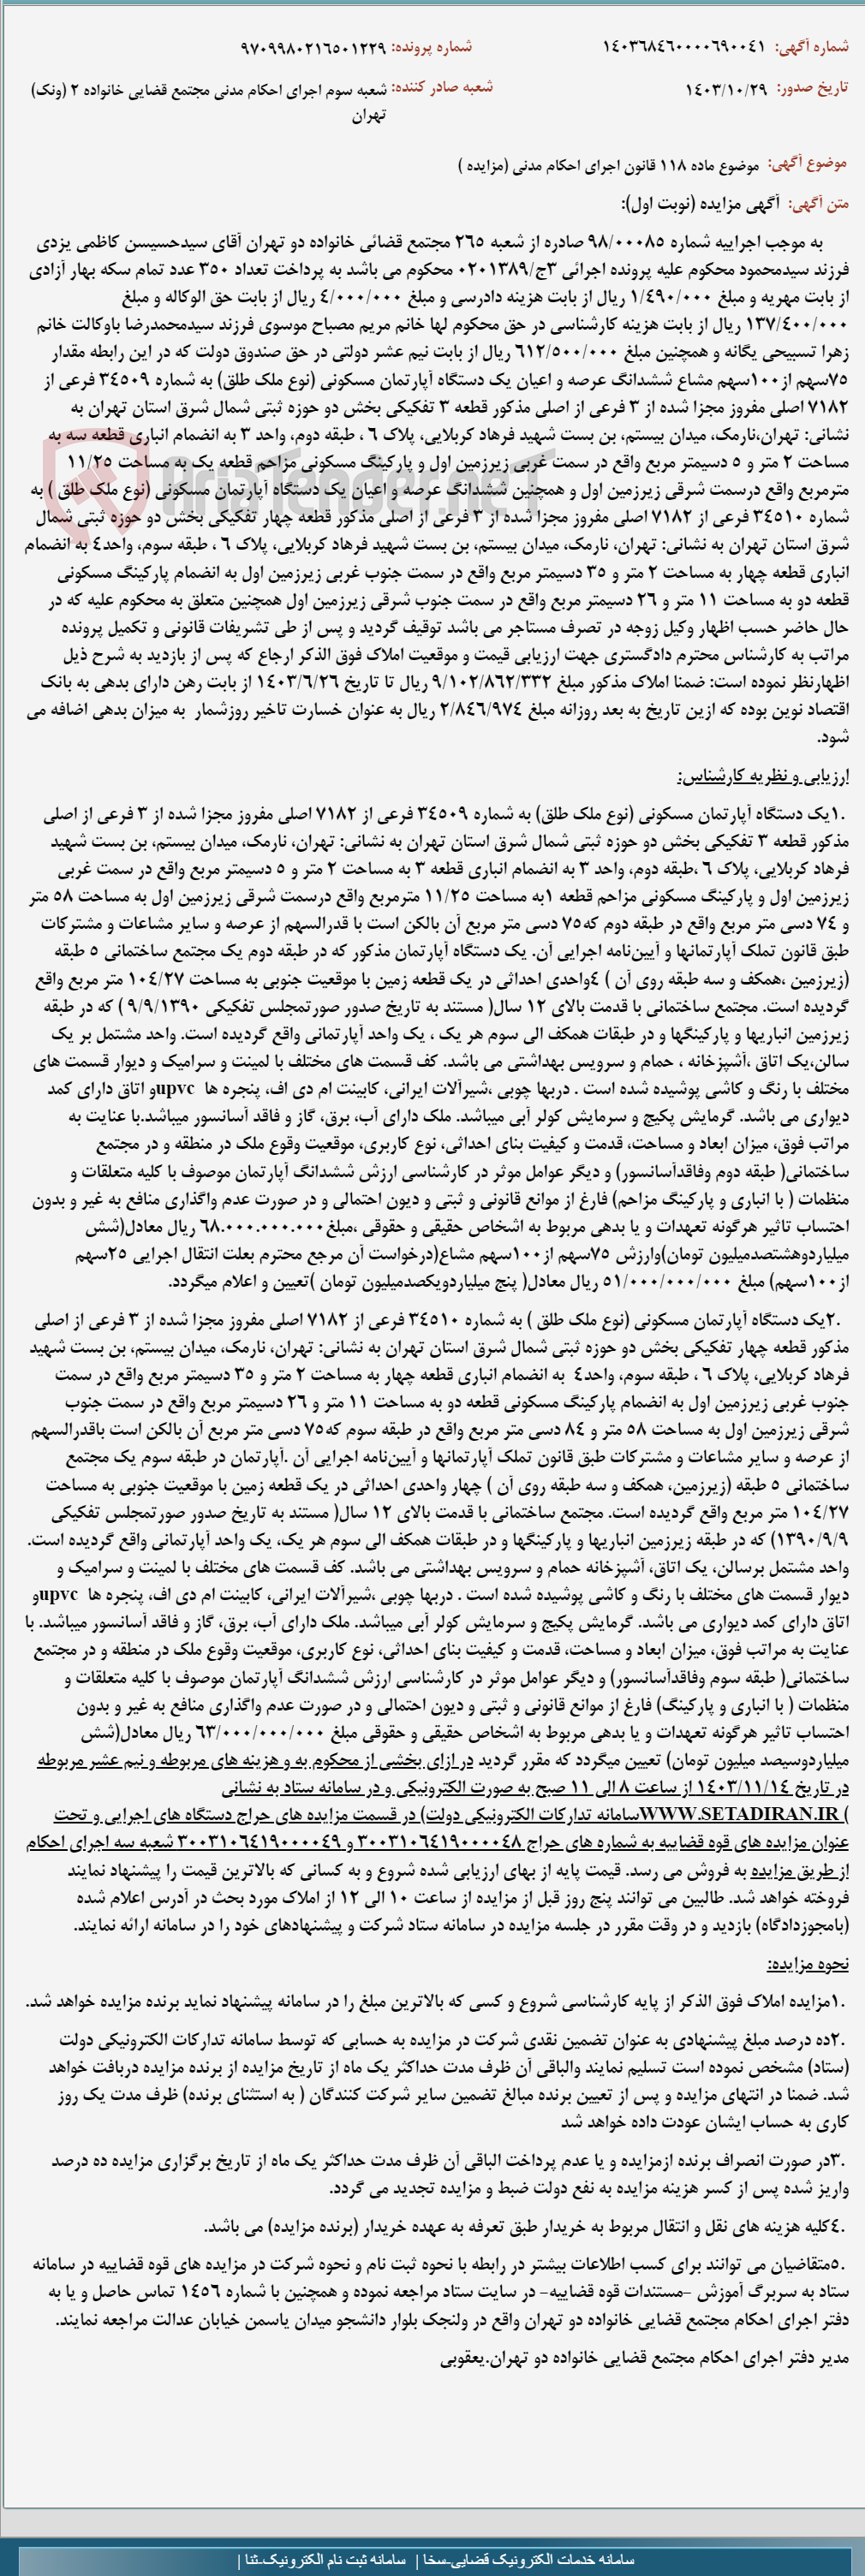 شماره آگهی: ۱۴۰۳۶۸۴۶۰۰۰۰۶۹۰۰۴۱ شماره پرونده: ۹۷۰۹۹۸۰۲۱۶۵۰۱۲۲۹
تاریخ صدور: ۱۴۰۳/۱۰/۲۹ شعبه صادر کننده: شعبه سوم اجرای احکام مدنی مجتمع قضایی خانواده ۲ (ونک)
تهران
موضوع آگهی: موضوع ماده ۱۱۸ قانون اجرای احکام مدنی (مزایده )
متن آگهی: آگهی مزایده (نوبت اول):
به موجب اجراییه شماره ۹۸/۰۰۰۸۵ صادره از شعبه ۲۶۵ مجتمع قضائی خانواده دو تهران آقای سیدحسیسن کاظمی یزدی
فرزند سیدمحمود محکوم علیه پرونده اجرائی ۳ج/۰۲۰۱۳۸۹ محکوم می باشد به پرداخت تعداد ۳۵۰ عدد تمام سکه بهار آزادی
از بابت مهریه و مبلغ ۱/۴۹۰/۰۰۰ ریال از بابت هزینه دادرسی و مبلغ ۴/۰۰۰/۰۰۰ ریال از بابت حق الوکاله و مبلغ
۱۳۷/۴۰۰/۰۰۰ ریال از بابت هزینه کارشناسی در حق محکوم لها خانم مریم مصباح موسوی فرزند سیدمحمدرضا باوکالت خانم
زهرا تسبیحی یگانه و همچنین مبلغ ۶۱۲/۵۰۰/۰۰۰ ریال از بابت نیم عشر دولتی در حق صندوق دولت که در این رابطه مقدار
۷۵سهم از۱۰۰سهم مشاع ششدانگ عرصه و اعیان یک دستگاه آپارتمان مسکونی (نوع ملک طلق) به شماره ۳۴۵۰۹ فرعی از
۷۱۸۲ اصلی مفروز مجزا شده از ۳ فرعی از اصلی مذکور قطعه ۳ تفکیکی بخش دو حوزه ثبتی شمال شرق استان تهران به
نشانی: تهران،نارمک، میدان بیستم، بن بست شهید فرهاد کربلایی، پلاک ۶ ، طبقه دوم، واحد ۳ به انضمام انباری قطعه سه به
مساحت ۲ متر و ۵ دسیمتر مربع واقع در سمت غربی زیرزمین اول و پارکینگ مسکونی مزاحم قطعه یک به مساحت ۱۱/۲۵
مترمربع واقع درسمت شرقی زیرزمین اول و همچنین ششدانگ عرصه و اعیان یک دستگاه آپارتمان مسکونی (نوع ملک طلق ) به
شماره ۳۴۵۱۰ فرعی از ۷۱۸۲ اصلی مفروز مجزا شده از ۳ فرعی از اصلی مذکور قطعه چهار تفکیکی بخش دو حوزه ثبتی شمال
شرق استان تهران به نشانی: تهران، نارمک، میدان بیستم، بن بست شهید فرهاد کربلایی، پلاک ۶ ، طبقه سوم، واحد۴ به انضمام
انباری قطعه چهار به مساحت ۲ متر و ۳۵ دسیمتر مربع واقع در سمت جنوب غربی زیرزمین اول به انضمام پارکینگ مسکونی
قطعه دو به مساحت ۱۱ متر و ۲۶ دسیمتر مربع واقع در سمت جنوب شرقی زیرزمین اول همچنین متعلق به محکوم علیه که در
حال حاضر حسب اظهار وکیل زوجه در تصرف مستاجر می باشد توقیف گردید و پس از طی تشریفات قانونی و تکمیل پرونده
مراتب به کارشناس محترم دادگستری جهت ارزیابی قیمت و موقعیت املاک فوق الذکر ارجاع که پس از بازدید به شرح ذیل
اظهارنظر نموده است: ضمنا املاک مذکور مبلغ ۹/۱۰۲/۸۶۲/۳۳۲ ریال تا تاریخ ۱۴۰۳/۶/۲۶ از بابت رهن دارای بدهی به بانک
اقتصاد نوین بوده که ازین تاریخ به بعد روزانه مبلغ ۲/۸۴۶/۹۷۴ ریال به عنوان خسارت تاخیر روزشمار به میزان بدهی اضافه می
شود.
ارزیابی و نظریه کارشناس:
.۱یک دستگاه آپارتمان مسکونی (نوع ملک طلق) به شماره ۳۴۵۰۹ فرعی از ۷۱۸۲ اصلی مفروز مجزا شده از ۳ فرعی از اصلی
مذکور قطعه ۳ تفکیکی بخش دو حوزه ثبتی شمال شرق استان تهران به نشانی: تهران، نارمک، میدان بیستم، بن بست شهید
فرهاد کربلایی، پلاک ۶ ،طبقه دوم، واحد ۳ به انضمام انباری قطعه ۳ به مساحت ۲ متر و ۵ دسیمتر مربع واقع در سمت غربی
زیرزمین اول و پارکینگ مسکونی مزاحم قطعه ۱به مساحت ۱۱/۲۵ مترمربع واقع درسمت شرقی زیرزمین اول به مساحت ۵۸ متر
و ۷۴ دسی متر مربع واقع در طبقه دوم که۷۵ دسی متر مربع آن بالکن است با قدرالسهم از عرصه و سایر مشاعات و مشترکات
طبق قانون تملک آپارتمانها و آیین‌نامه اجرایی آن. یک دستگاه آپارتمان مذکور که در طبقه دوم یک مجتمع ساختمانی ۵ طبقه
(زیرزمین ،همکف و سه طبقه روی آن ) ۴واحدی احداثی در یک قطعه زمین با موقعیت جنوبی به مساحت ۱۰۴/۲۷ متر مربع واقع
گردیده است. مجتمع ساختمانی با قدمت بالای ۱۲ سال( مستند به تاریخ صدور صورتمجلس تفکیکی ۹/۹/۱۳۹۰ ) که در طبقه
زیرزمین انباریها و پارکینگها و در طبقات همکف الی سوم هر یک ، یک واحد آپارتمانی واقع گردیده است. واحد مشتمل بر یک
سالن،یک اتاق ،آشپزخانه ، حمام و سرویس بهداشتی می باشد. کف قسمت های مختلف با لمینت و سرامیک و دیوار قسمت های
مختلف با رنگ و کاشی پوشیده شده است . دربها چوبی ،شیرآلات ایرانی، کابینت ام دی اف، پنجره ها upvcو اتاق دارای کمد
دیواری می باشد. گرمایش پکیج و سرمایش کولر آبی میباشد. ملک دارای آب، برق، گاز و فاقد آسانسور میباشد.با عنایت به
مراتب فوق، میزان ابعاد و مساحت، قدمت و کیفیت بنای احداثی، نوع کاربری، موقعیت وقوع ملک در منطقه و در مجتمع
ساختمانی( طبقه دوم وفاقدآسانسور) و دیگر عوامل موثر در کارشناسی ارزش ششدانگ آپارتمان موصوف با کلیه متعلقات و
منظمات ( با انباری و پارکینگ مزاحم) فارغ از موانع قانونی و ثبتی و دیون احتمالی و در صورت عدم واگذاری منافع به غیر و بدون
احتساب تاثیر هرگونه تعهدات و یا بدهی مربوط به اشخاص حقیقی و حقوقی ،مبلغ۶۸.۰۰۰.۰۰۰.۰۰۰ ریال معادل(شش
میلیاردوهشتصدمیلیون تومان)وارزش ۷۵سهم از۱۰۰سهم مشاع(درخواست آن مرجع محترم بعلت انتقال اجرایی ۲۵سهم
از۱۰۰سهم) مبلغ ۵۱/۰۰۰/۰۰۰/۰۰۰ ریال معادل( پنج میلیاردویکصدمیلیون تومان )تعیین و اعلام میگردد.
.۲یک دستگاه آپارتمان مسکونی (نوع ملک طلق ) به شماره ۳۴۵۱۰ فرعی از ۷۱۸۲ اصلی مفروز مجزا شده از ۳ فرعی از اصلی
مذکور قطعه چهار تفکیکی بخش دو حوزه ثبتی شمال شرق استان تهران به نشانی: تهران، نارمک، میدان بیستم، بن بست شهید
فرهاد کربلایی، پلاک ۶ ، طبقه سوم، واحد۴ به انضمام انباری قطعه چهار به مساحت ۲ متر و ۳۵ دسیمتر مربع واقع در سمت
جنوب غربی زیرزمین اول به انضمام پارکینگ مسکونی قطعه دو به مساحت ۱۱ متر و ۲۶ دسیمتر مربع واقع در سمت جنوب
شرقی زیرزمین اول به مساحت ۵۸ متر و ۸۴ دسی متر مربع واقع در طبقه سوم که۷۵ دسی متر مربع آن بالکن است باقدرالسهم
از عرصه و سایر مشاعات و مشترکات طبق قانون تملک آپارتمانها و آیین‌نامه اجرایی آن .آپارتمان در طبقه سوم یک مجتمع
ساختمانی ۵ طبقه (زیرزمین، همکف و سه طبقه روی آن ) چهار واحدی احداثی در یک قطعه زمین با موقعیت جنوبی به مساحت
۱۰۴/۲۷ متر مربع واقع گردیده است. مجتمع ساختمانی با قدمت بالای ۱۲ سال( مستند به تاریخ صدور صورتمجلس تفکیکی
۱۳۹۰/۹/۹) که در طبقه زیرزمین انباریها و پارکینگها و در طبقات همکف الی سوم هر یک، یک واحد آپارتمانی واقع گردیده است.
واحد مشتمل برسالن، یک اتاق، آشپزخانه حمام و سرویس بهداشتی می باشد. کف قسمت های مختلف با لمینت و سرامیک و
دیوار قسمت های مختلف با رنگ و کاشی پوشیده شده است . دربها چوبی ،شیرآلات ایرانی، کابینت ام دی اف، پنجره ها upvcو
اتاق دارای کمد دیواری می باشد. گرمایش پکیج و سرمایش کولر آبی میباشد. ملک دارای آب، برق، گاز و فاقد آسانسور میباشد. با
عنایت به مراتب فوق، میزان ابعاد و مساحت، قدمت و کیفیت بنای احداثی، نوع کاربری، موقعیت وقوع ملک در منطقه و در مجتمع
ساختمانی( طبقه سوم وفاقدآسانسور) و دیگر عوامل موثر در کارشناسی ارزش ششدانگ آپارتمان موصوف با کلیه متعلقات و
منظمات ( با انباری و پارکینگ) فارغ از موانع قانونی و ثبتی و دیون احتمالی و در صورت عدم واگذاری منافع به غیر و بدون
احتساب تاثیر هرگونه تعهدات و یا بدهی مربوط به اشخاص حقیقی و حقوقی مبلغ ۶۳/۰۰۰/۰۰۰/۰۰۰ ریال معادل(شش
میلیاردوسیصد میلیون تومان) تعیین میگردد که مقرر گردید در ازای بخشی از محکوم به و هزینه های مربوطه و نیم عشر مربوطه
در تاریخ ۱۴۰۳/۱۱/۱۴ از ساعت ۸ الی ۱۱ صبح به صورت الکترونیکی و در سامانه ستاد به نشانی
( WWW.SETADIRAN.IRسامانه تدارکات الکترونیکی دولت) در قسمت مزایده های حراج دستگاه های اجرایی و تحت
عنوان مزایده های قوه قضاییه به شماره های حراج ۳۰۰۳۱۰۶۴۱۹۰۰۰۰۴۸ و ۳۰۰۳۱۰۶۴۱۹۰۰۰۰۴۹ شعبه سه اجرای احکام
از طریق مزایده به فروش می رسد. قیمت پایه از بهای ارزیابی شده شروع و به کسانی که بالاترین قیمت را پیشنهاد نمایند
فروخته خواهد شد. طالبین می توانند پنج روز قبل از مزایده از ساعت ۱۰ الی ۱۲ از املاک مورد بحث در آدرس اعلام شده
(بامجوزدادگاه) بازدید و در وقت مقرر در جلسه مزایده در سامانه ستاد شرکت و پیشنهادهای خود را در سامانه ارائه نمایند.
نحوه مزایده:
.۱مزایده املاک فوق الذکر از پایه کارشناسی شروع و کسی که بالاترین مبلغ را در سامانه پیشنهاد نماید برنده مزایده خواهد شد.
.۲ده درصد مبلغ پیشنهادی به عنوان تضمین نقدی شرکت در مزایده به حسابی که توسط سامانه تدارکات الکترونیکی دولت
(ستاد) مشخص نموده است تسلیم نمایند والباقی آن ظرف مدت حداکثر یک ماه از تاریخ مزایده از برنده مزایده دریافت خواهد
شد. ضمنا در انتهای مزایده و پس از تعیین برنده مبالغ تضمین سایر شرکت کنندگان ( به استثنای برنده) ظرف مدت یک روز
کاری به حساب ایشان عودت داده خواهد شد
.۳در صورت انصراف برنده ازمزایده و یا عدم پرداخت الباقی آن ظرف مدت حداکثر یک ماه از تاریخ برگزاری مزایده ده درصد
واریز شده پس از کسر هزینه مزایده به نفع دولت ضبط و مزایده تجدید می گردد.
.۴کلیه هزینه های نقل و انتقال مربوط به خریدار طبق تعرفه به عهده خریدار (برنده مزایده) می باشد.
.۵متقاضیان می توانند برای کسب اطلاعات بیشتر در رابطه با نحوه ثبت نام و نحوه شرکت در مزایده های قوه قضاییه در سامانه
ستاد به سربرگ آموزش –مستندات قوه قضاییه– در سایت ستاد مراجعه نموده و همچنین با شماره ۱۴۵۶ تماس حاصل و یا به
دفتر اجرای احکام مجتمع قضایی خانواده دو تهران واقع در ولنجک بلوار دانشجو میدان یاسمن خیابان عدالت مراجعه نمایند.
مدیر دفتر اجرای احکام مجتمع قضایی خانواده دو تهران.یعقوبی
AriaTender.neT
سامانه خدمات الکترونیک قضایی-سخا | سامانه ثبت نام الکترونیک-ثنا |